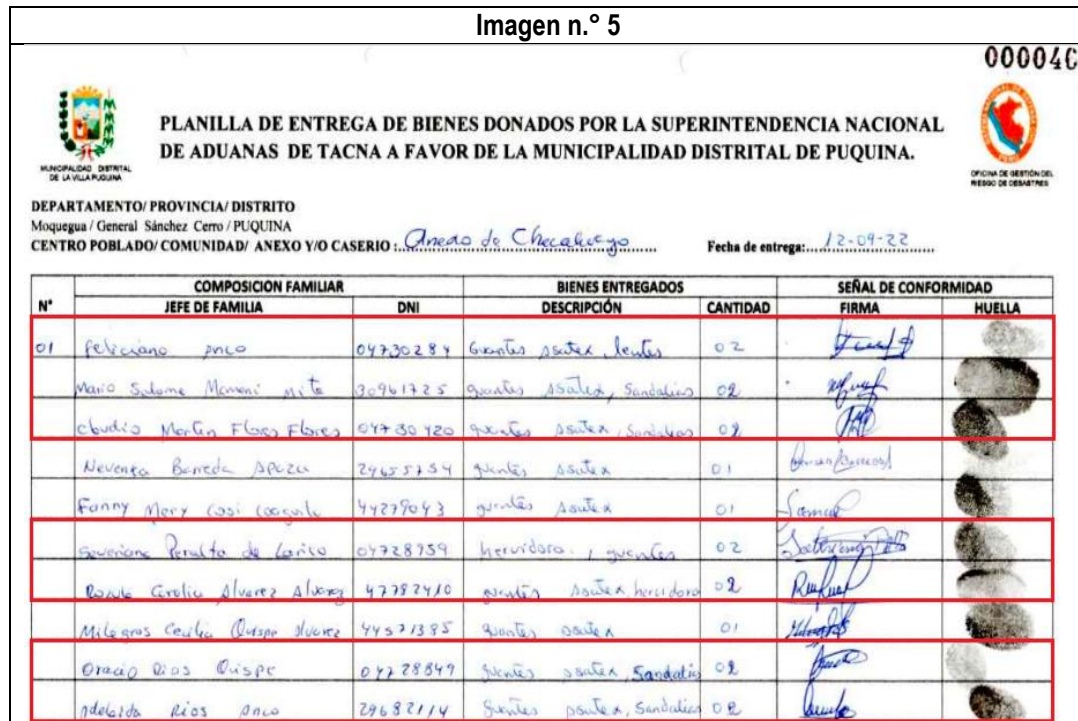 Imagen n.° 5
000040
MUNICIPALIDAD DISTRITAL
DE LA VILLA PUQUINA
PLANILLA DE ENTREGA DE BIENES DONADOS POR LA SUPERINTENDENCIA NACIONAL
DE ADUANAS DE TACNA A FAVOR DE LA MUNICIPALIDAD DISTRITAL DE PUQUINA.
OFICINA DE GESTIÓN DEL
RIESGO DE DESASTRES
DEPARTAMENTO/ PROVINCIA/ DISTRITO
Moquegua / General Sánchez Cerro / PUQUINA
CENTRO POBLADO/ COMUNIDAD/ ANEXO Y/O CASERIO : Anexo de Fecha de entrega: 12-09-22
COMPOSICIÓN FAMILIAR BIENES ENTREGADOS SEÑAL DE CONFORMIDAD
N° JEFE DE FAMILIA DNI DESCRIPCIÓN CANTIDAD FIRMA HUELLA
01 Feliciano Anco 04730284 Guantes, lentes 02
Mario Salome Mamani 30961725 guantes, Sandalias 02
Claudio Martin Flores Flores 04730420 guantes, Sandalias 02
Barreda Apaza guantes 01
Fanny Mery 44279043 guantes 01
Peralta de 04728959 hervidora, guantes 02
Carolin Alvarez Alvarez 47782410 guantes hervidora 02
Milagros Cecilia Quispe Alvarez 44571385 guantes 01
Oracio Rios Quispe 04728849 guantes, Sandalias 02
Adelaida Rios Anco 29682114 guantes, Sandalias 02